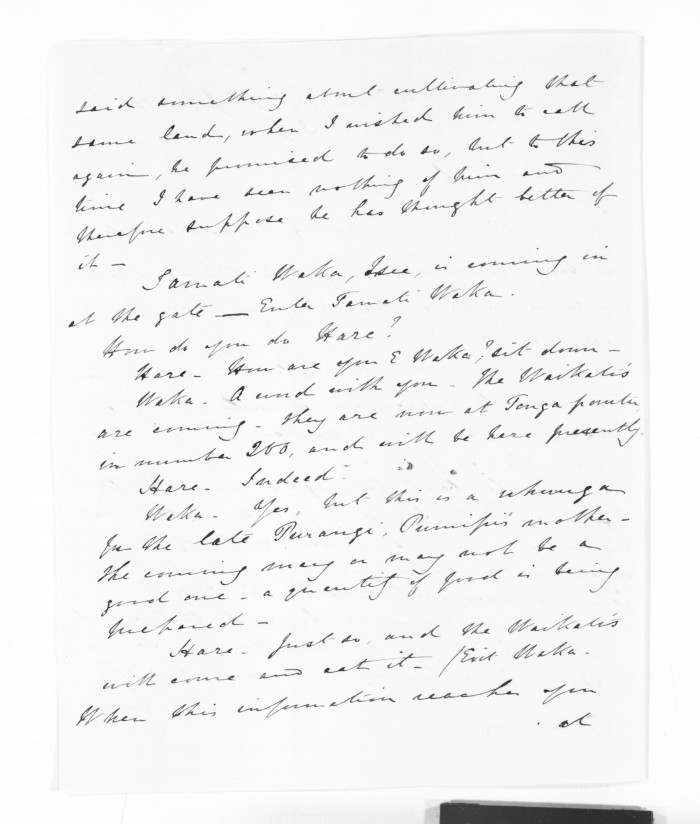 said something about cultivating that
same land, when I wished him to call
again, he promised to do so, but to this
time I have seen nothing of him and
therefore suppose he has thought better of
it —
Tamati Waka, I see, is coming in
at the gate — Enter Tamati Waka.
How do you do Hare?
Hare - How are you E Waka? sit down -
Waka - A word with you - The Waikato's
are coming - they are now at Tonga
in number 200, and will be here presently.
Hare - Indeed -
Waka - Yes, but this is a uhunga
for the late Parangi, mother -
the coming may or may not be a
good one - a quantity of food is being
prepared -
Hare - Just so, and the Waikato's
will come and eat it - (Exit Waka.
When this information reaches you
at